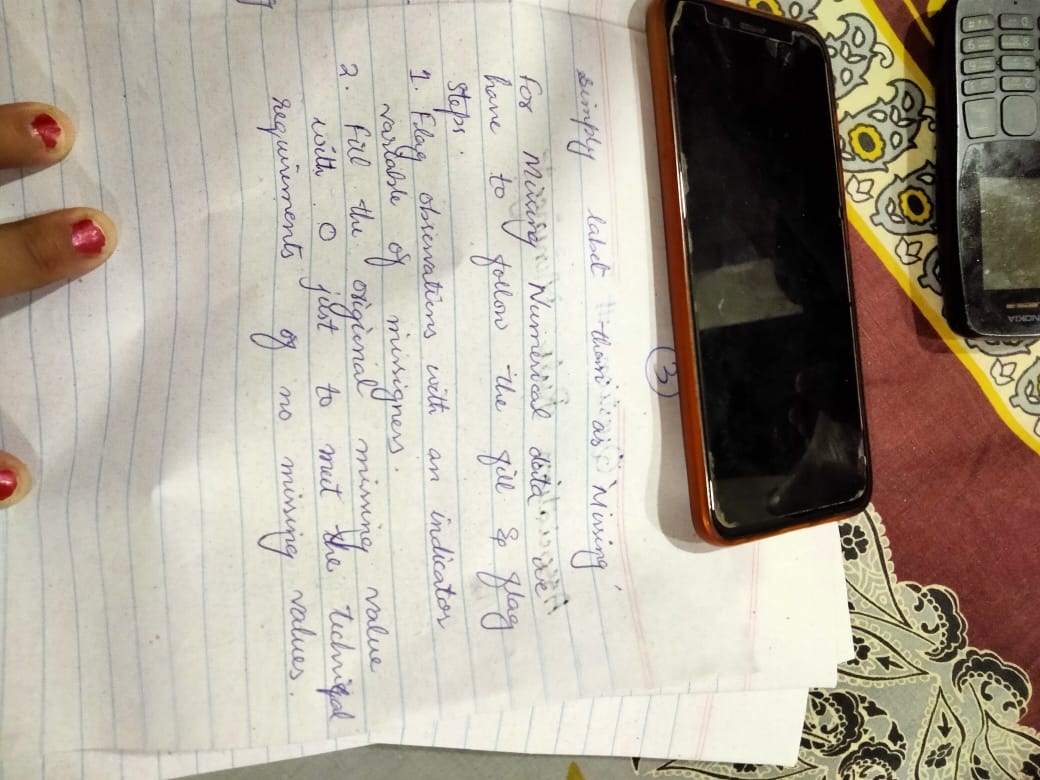 3
simply label them as 'Missing'
For Missing Numerical data we
have to follow the fill & flag
steps.
1. Flag observations with an indicator
variable of missigness.
2. Fill the original missing value
with 0 just to meet the technical
requirements of no missing values.
NOKIA